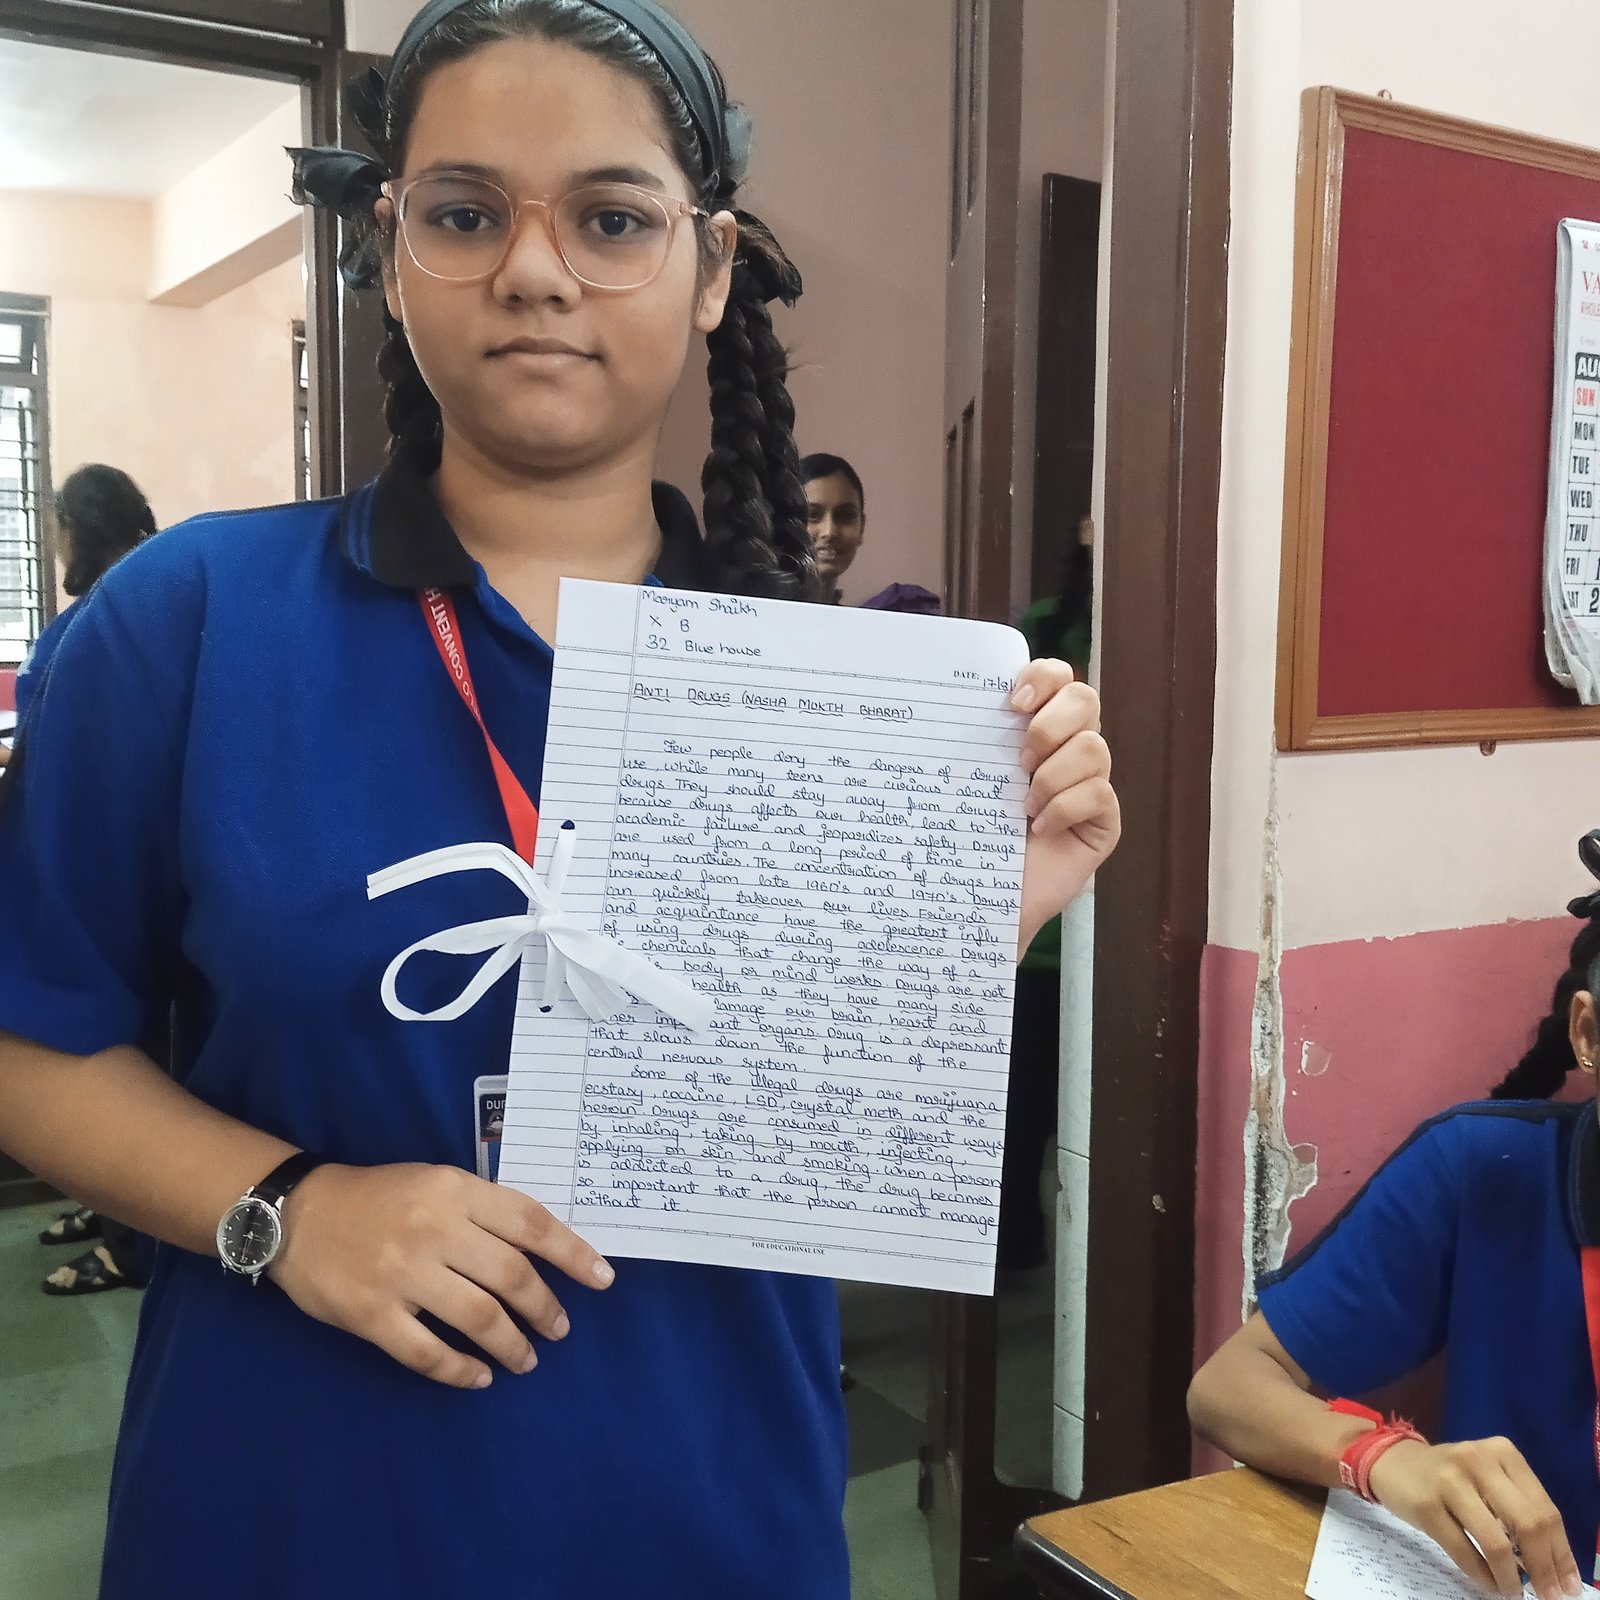 Maryam Shaikh
X B
32 Blue house
DATE: 17/8/
ANTI DRUGS (NASHA MUKTH BHARAT)
Few people deny the dangers of drugs
use, while many teens are curious about
drugs. They should stay away from drugs
because drugs affects our health, lead to the
academic failure and jeopardizes safety. Drugs
are used from a long period of time in
many countries. The concentration of drugs has
increased from late 1960's and 1970's. Drugs
can quickly takeover our lives. Friends
and acquaintance have the greatest influ
of using drugs during adolescence. Drugs
chemicals that change the way of a
body or mind works. Drugs are not
health as they have many side
damage our brain, heart and
ant organs. Drug is a depressant
that slows down the function of the
central nervous system.
Some of the illegal drugs are marijuana
ecstasy, cocaine, LSD, crystal meth and the
heroin. Drugs are consumed in different ways
by inhaling, taking by mouth, injecting,
applying on skin and smoking. When a person
is addicted to a drug, the drug becomes
so important that the person cannot manage
without it.
FOR EDUCATIONAL USE
CONVENT H
DU
VA
AU
SUN
MON
TUE
WED
THU
FRI 1
SAT 2